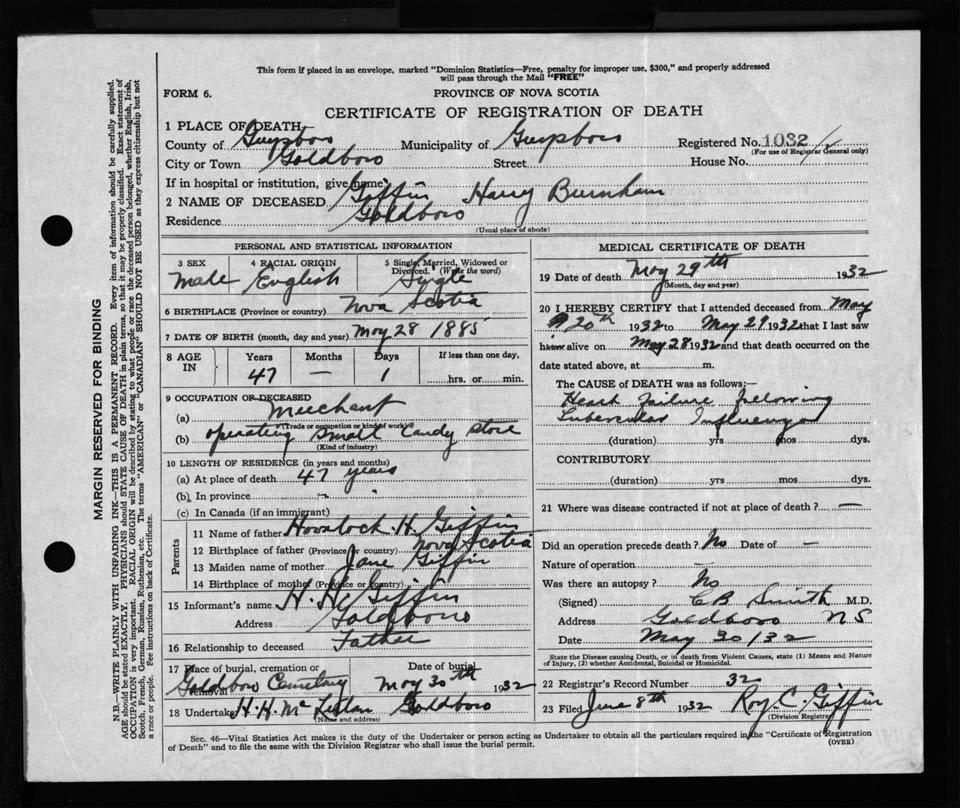 This form if placed in an envelope, marked "Dominion Statistics—Free, penalty for improper use, $300," and properly addressed
will pass through the Mail "FREE"
FORM 6.
PROVINCE OF NOVA SCOTIA
CERTIFICATE OF REGISTRATION OF DEATH
1 PLACE OF DEATH
County of Guysboro Municipality of Guysboro Registered No. 1032
(For use of Registrar General only)
City or Town Goldboro Street House No.
If in hospital or institution, give name
2 NAME OF DECEASED Giffin Harry Burnham
Residence Goldboro
(Usual place of abode)
PERSONAL AND STATISTICAL INFORMATION
3 SEX 4 RACIAL ORIGIN 5 Single, Married, Widowed or Divorced. (Write the word)
Male English Single
6 BIRTHPLACE (Province or country) Nova Scotia
7 DATE OF BIRTH (month, day and year) May 28 1885
8 AGE IN Years Months Days If less than one day,
47 — 1 hrs. or min.
9 OCCUPATION OF DECEASED
(a) Merchant
(Trade or occupation or kind of work)
(b) operating small Candy store
(Kind of industry)
10 LENGTH OF RESIDENCE (in years and months)
(a) At place of death 47 years
(b) In province
(c) In Canada (if an immigrant)
Parents
11 Name of father H. Giffin
12 Birthplace of father (Province or country) Nova Scotia
13 Maiden name of mother Jane Giffin
14 Birthplace of mother (Province or country)
15 Informant's name H. H. Giffin
Address Goldboro
16 Relationship to deceased Father
17 Place of burial, cremation or removal Date of burial
Goldboro Cemetary May 30th 1932
18 Undertaker H. H. Goldboro
(Name and address)
MEDICAL CERTIFICATE OF DEATH
19 Date of death May 29th 1932
(Month, day and year)
20 I HEREBY CERTIFY that I attended deceased from May
20th 1932 to May 29 1932 that I last saw
him alive on May 28 1932 and that death occurred on the
date stated above, at m.
The CAUSE of DEATH was as follows:—
Heart Failure following
Tubercular Influenza
(duration) yrs mos dys.
CONTRIBUTORY
(duration) yrs. mos. dys.
21 Where was disease contracted if not at place of death? —
Did an operation precede death? No Date of —
Nature of operation —
Was there an autopsy? No
(Signed) C B Smith M.D.
Address Goldboro N S
Date May 30/32
State the Disease causing Death, or in death from Violent Causes, state (1) Means and Nature
of Injury, (2) whether Accidental, Suicidal or Homicidal.
22 Registrar's Record Number 32
23 Filed June 8th 1932 Roy C. Giffin
(Division Registrar)
Sec. 46—Vital Statistics Act makes it the duty of the Undertaker or person acting as Undertaker to obtain all the particulars required in the "Certificate of Registration
of Death" and to file the same with the Division Registrar who shall issue the burial permit.
(OVER)
MARGIN RESERVED FOR BINDING
N.B.—WRITE PLAINLY WITH UNFADING INK—THIS IS A PERMANENT RECORD. Every item of information should be carefully supplied.
AGE should be stated EXACTLY. PHYSICIANS should STATE CAUSE OF DEATH in plain terms, so that it may be properly classified. Exact statement of
OCCUPATION is very important. RACIAL ORIGIN will be described by stating to what people or race the deceased person belonged, whether English, Irish,
Scotch, French, German, Russian, Ruthenian, etc. The terms "AMERICAN" or "CANADIAN" SHOULD NOT BE USED as they express citizenship but not
a race or people. See instructions on back of Certificate.